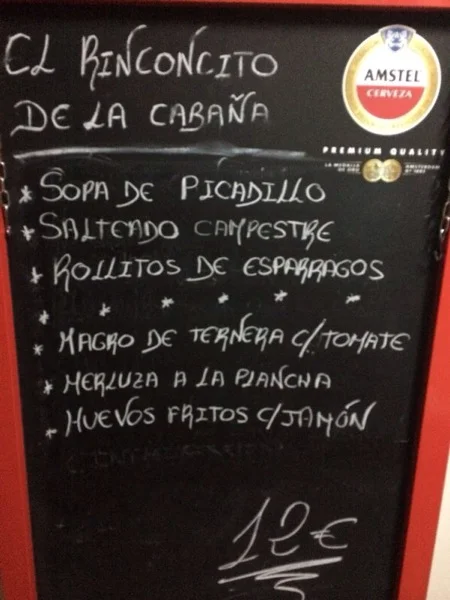 EL RINCONCITO
DE LA CABAÑA
AMSTEL
CERVEZA
PREMIUM QUALITY
LA MEDALLA
DE ORO
AMSTERDAM
* SOPA DE PICADILLO
* SALTEADO CAMPESTRE
* ROLLITOS DE ESPARRAGOS
* * * * *
* MAGRO DE TERNERA C/TOMATE
* MERLUZA A LA PLANCHA
- HUEVOS FRITOS C/JAMÓN
12€